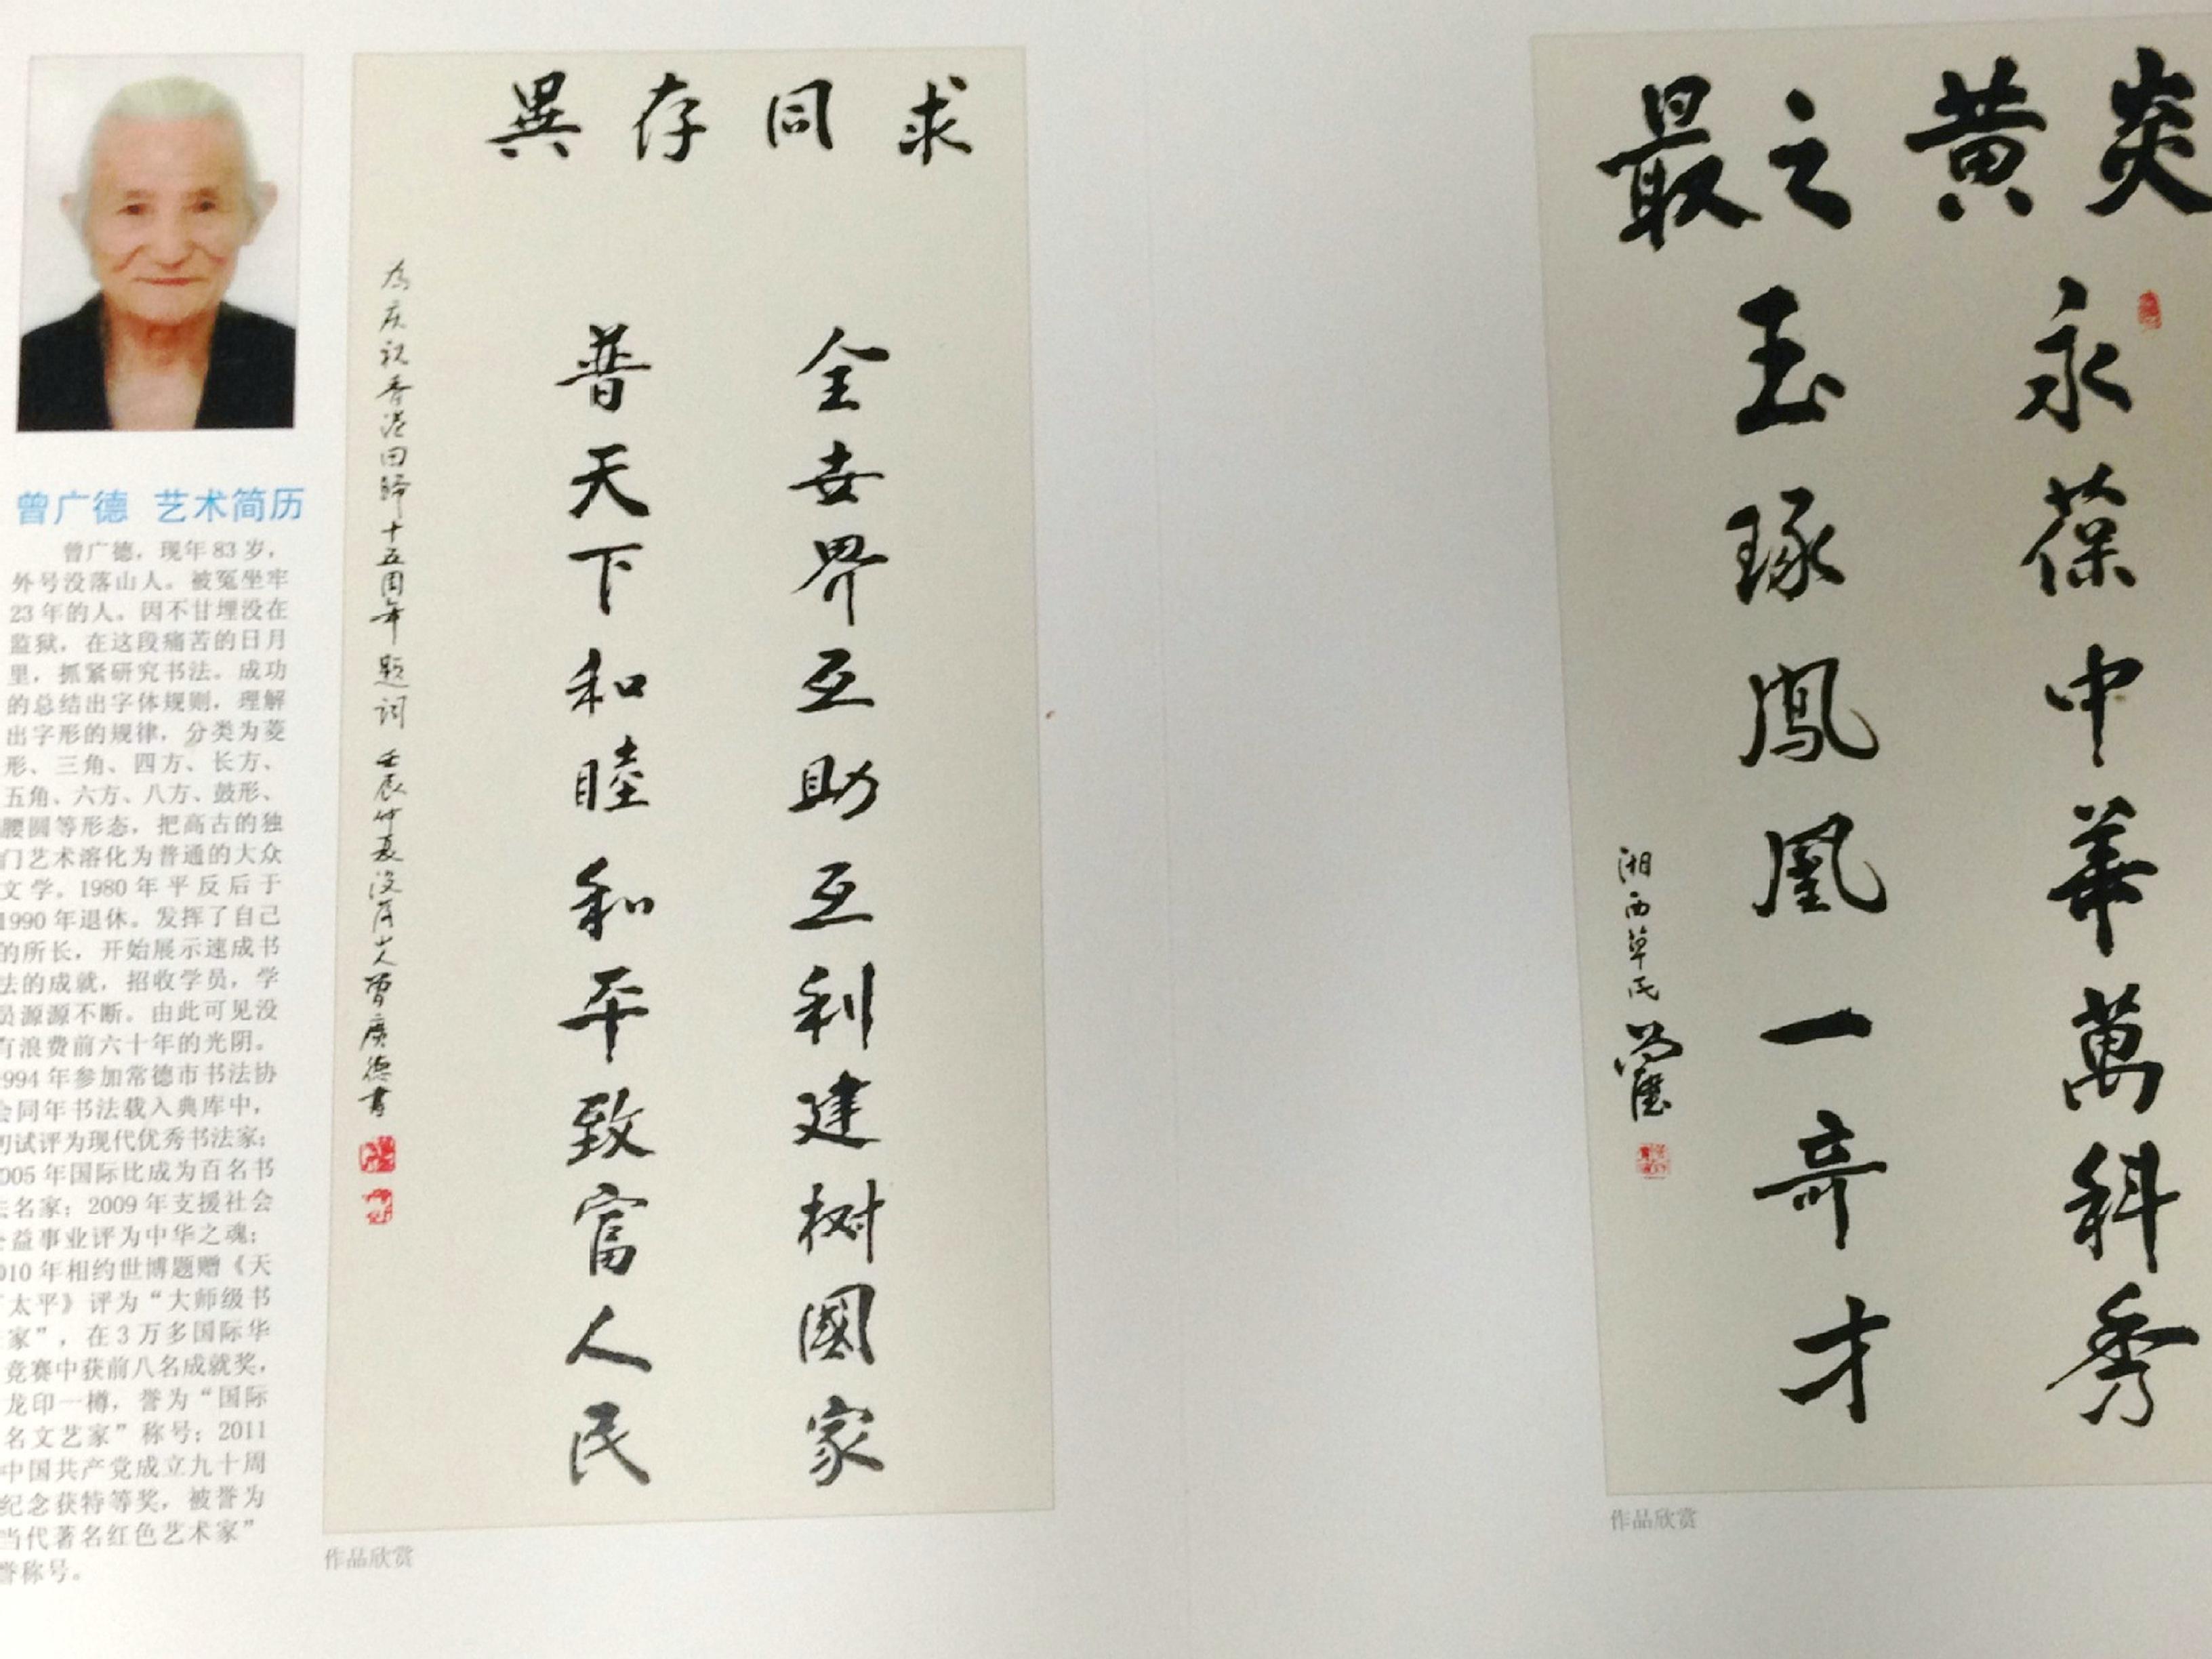 曾广德 艺术简历
曾广德，现年83岁，
外号没落山人。被冤坐牢
23年的人。因不甘埋没在
监狱，在这段痛苦的日月
里，抓紧研究书法。成功
的总结出字体规则，理解
出字形的规律，分类为菱
形、三角、四方、长方、
五角、六方、八方、鼓形、
腰圆等形态，把高古的独
门艺术溶化为普通的大众
文学。1980年平反后于
1990年退休。发挥了自己
的所长，开始展示速成书
法的成就，招收学员，学
员源源不断。由此可见没
有浪费前六十年的光阴。
1994年参加常德市书法协
会同年书法载入典库中，
初试评为现代优秀书法家；
005年国际比成为百名书
法名家；2009年支援社会
公益事业评为中华之魂；
010年相约世博题赠《天
下太平》评为“大师级书
家”，在3万多国际华
竞赛中获前八名成就奖，
龙印一樽，誉为“国际
名文艺家”称号；2011
中国共产党成立九十周
纪念获特等奖，被誉为
当代著名红色艺术家”
誉称号。
求同存異
全世界互助互利建树國家
普天下和睦和平致富人民
为庆祝香港回歸十五周年题词 壬辰仲夏没落山人曾廣德書
作品欣赏
炎黄之最
永葆中華萬科秀
玉琢鳳凰一奇才
湘西草民
作品欣赏